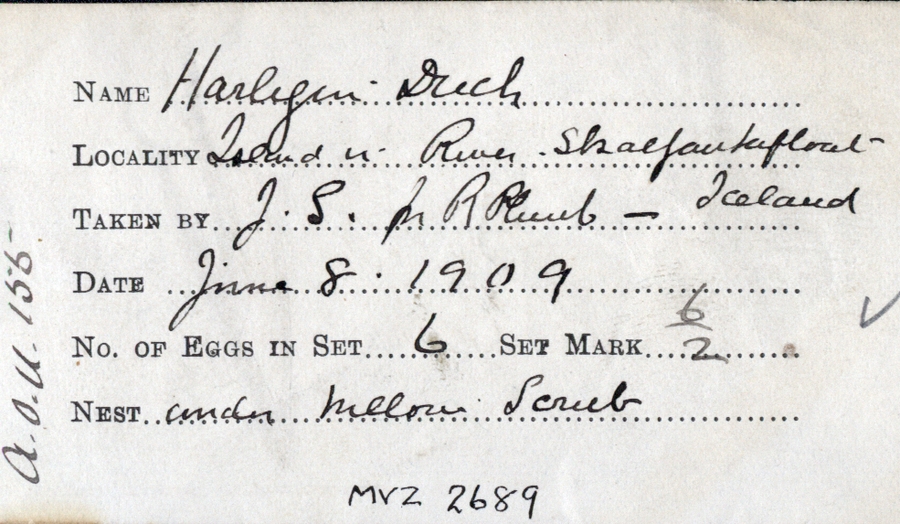 NAME Harlequin Duck
LOCALITY Island in River
TAKEN BY J. S. R Plumb — Iceland
DATE June 8. 1909
NO. OF EGGS IN SET 6 SET MARK 6/2
NEST under Willow Scrub
MVZ 2689
A.O.U. 155